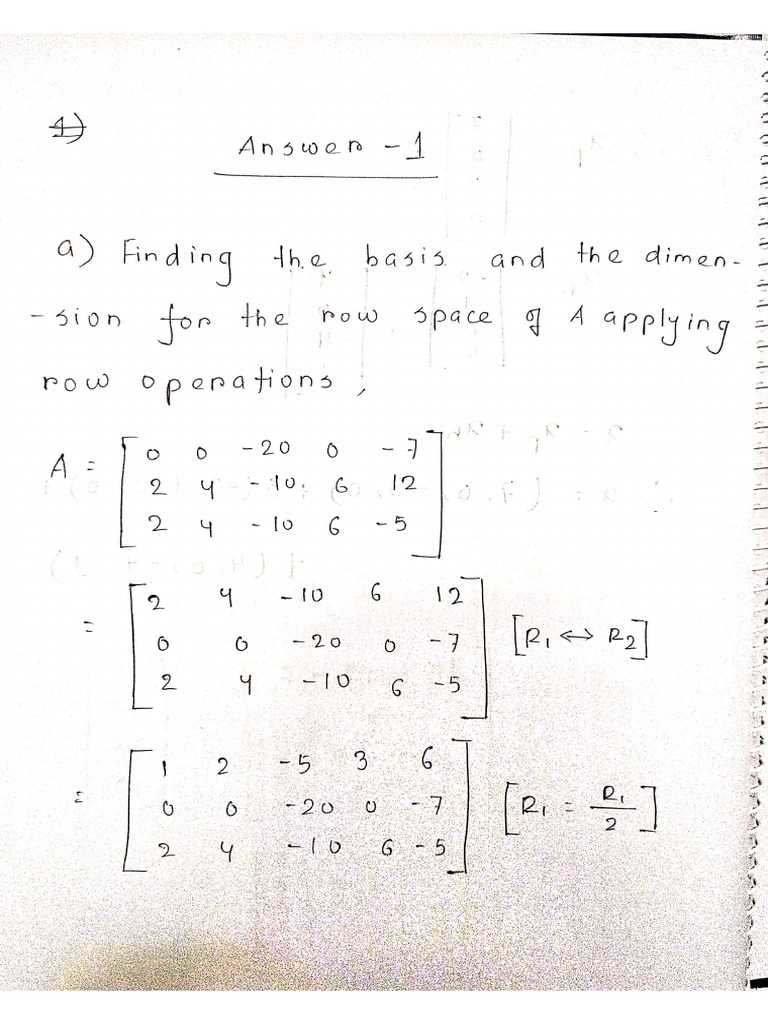 1)
Answer - 1
a) Finding the basis and the dimen-
-sion for the row space of A applying
row operations,
A = [ 0 0 -20 0 -7
2 4 -10 6 12
2 4 -10 6 -5 ]
= [ 2 4 -10 6 12
0 0 -20 0 -7 [R₁ ↔ R₂]
2 4 -10 6 -5 ]
= [ 1 2 -5 3 6
0 0 -20 0 -7 [R₁ = R₁/2]
2 4 -10 6 -5 ]